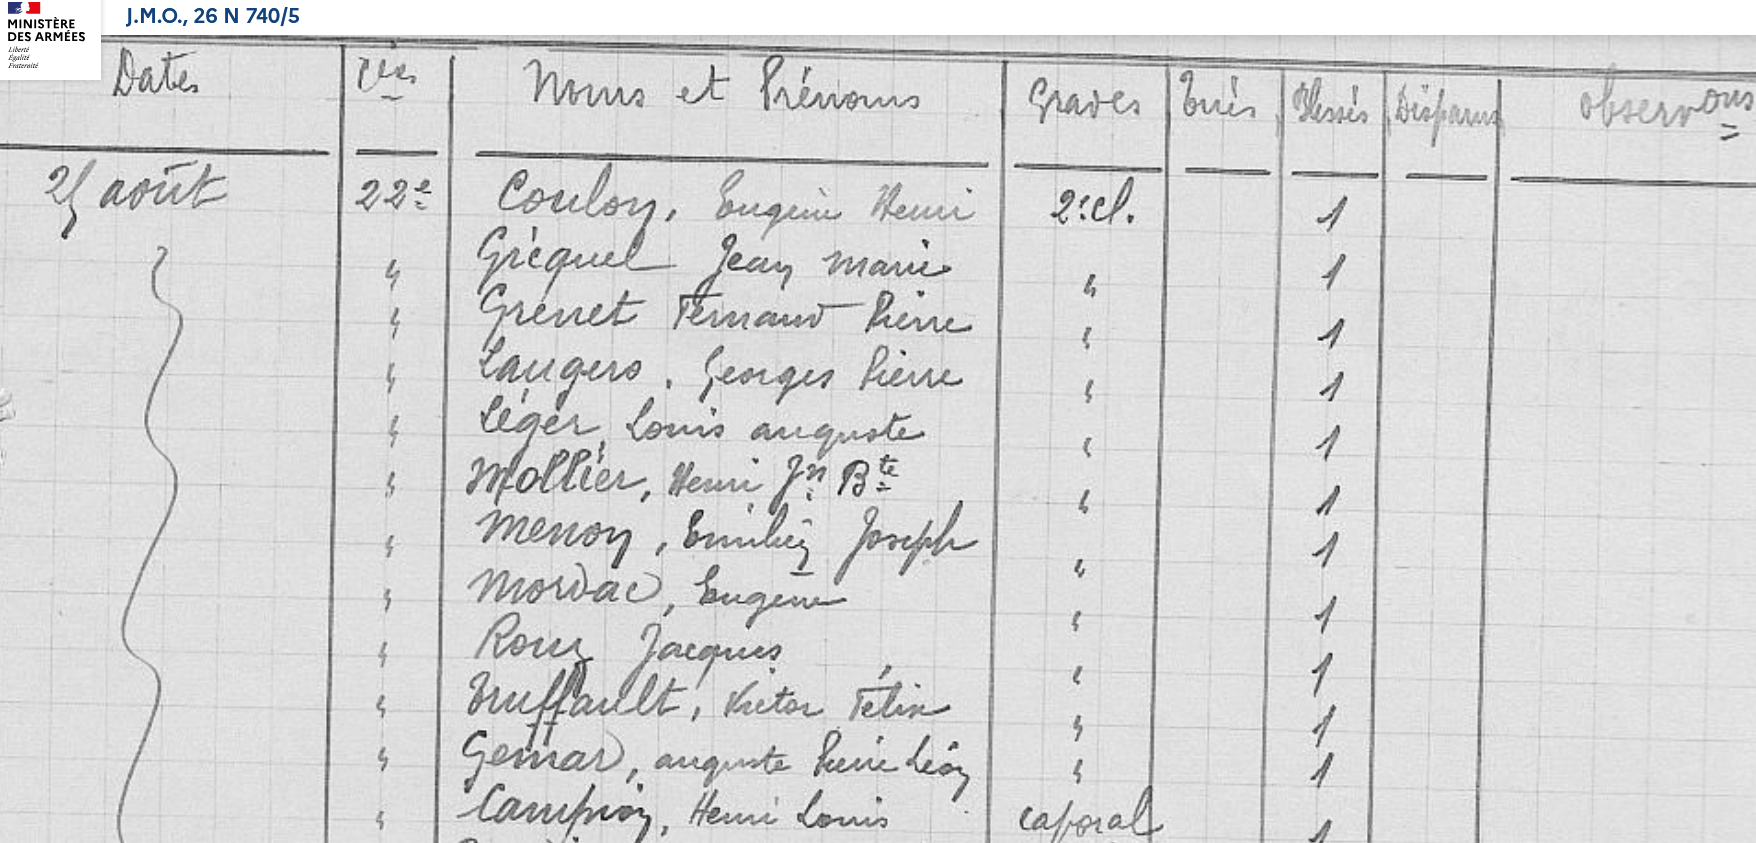 MINISTÈRE
DES ARMÉES
Liberté
Égalité
Fraternité
J.M.O., 26 N 740/5
Dates Cies Noms et Prénoms Grades Tués Blessés Disparus Observons
25 août 22e Coulon, Eugène Henri 2e cl. 1
" Gréquel Jean Marie " 1
" Grenet Fernand Pierre " 1
" Laugero, Georges Pierre " 1
" Léger, Louis Auguste " 1
" Mollier, Henri Jn Bte " 1
" Menon, Emilien Joseph " 1
" Mordac, Eugène " 1
" Roux Jacques " 1
" Truffault, Victor Félix " 1
" Gemard, Auguste Pierre Léon " 1
" Campion, Henri Louis caporal 1